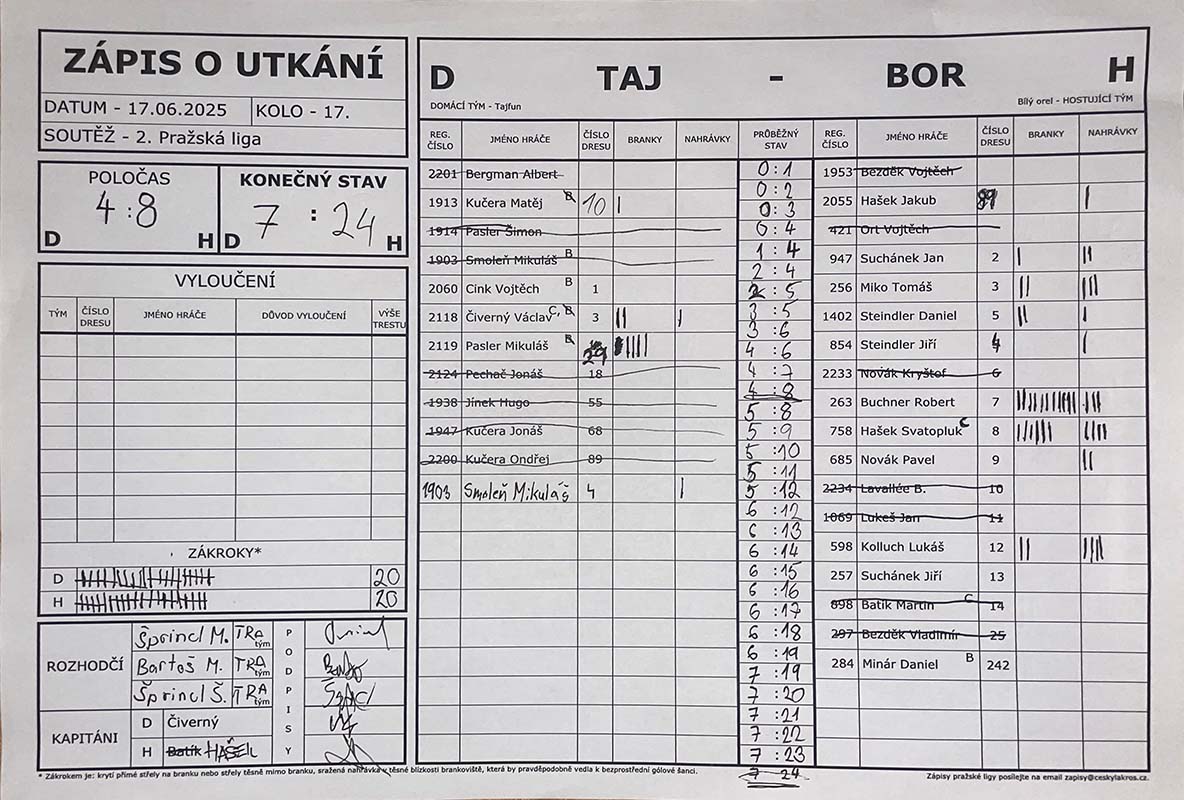 ZÁPIS O UTKÁNÍ
DATUM - 17.06.2025 KOLO - 17.
SOUTĚŽ - 2. Pražská liga
POLOČAS
4 : 8
D H
KONEČNÝ STAV
7 : 24
D H
VYLOUČENÍ
TÝM ČÍSLO DRESU JMÉNO HRÁČE DŮVOD VYLOUČENÍ VÝŠE TRESTU
ZÁKROKY*
D 20
H 20
ROZHODČÍ
Šprincl M. TRA tým
Bartoš M. TRA tým
Šprincl Š. TRA tým
PODPISY
KAPITÁNI
D Čiverný
H Batík HAŠEK
D TAJ - BOR H
DOMÁCÍ TÝM - Tajfun Bílý orel - HOSTUJÍCÍ TÝM
REG. ČÍSLO JMÉNO HRÁČE ČÍSLO DRESU BRANKY NAHRÁVKY
2201 Bergman Albert
1913 Kučera Matěj B 10
1914 Pasler Šimon
1903 Smoleň Mikuláš B
2060 Cink Vojtěch B 1
2118 Čiverný Václav C, B 3
2119 Pasler Mikuláš B 29
2124 Pechač Jonáš 18
1938 Jínek Hugo 55
1947 Kučera Jonáš 68
2200 Kučera Ondřej 89
1903 Smoleň Mikuláš 4
PRŮBĚŽNÝ STAV
0 : 1
0 : 2
0 : 3
0 : 4
1 : 4
2 : 4
2 : 5
3 : 5
3 : 6
4 : 6
4 : 7
4 : 8
5 : 8
5 : 9
5 : 10
5 : 11
5 : 12
6 : 12
6 : 13
6 : 14
6 : 15
6 : 16
6 : 17
6 : 18
6 : 19
7 : 19
7 : 20
7 : 21
7 : 22
7 : 23
7 24
REG. ČÍSLO JMÉNO HRÁČE ČÍSLO DRESU BRANKY NAHRÁVKY
1953 Bezděk Vojtěch
2055 Hašek Jakub 89
421 Ort Vojtěch
947 Suchánek Jan 2
256 Miko Tomáš 3
1402 Steindler Daniel 5
854 Steindler Jiří 4
2233 Novák Kryštof 6
263 Buchner Robert 7
758 Hašek Svatopluk C 8
685 Novák Pavel 9
2234 Lavallée B. 10
1069 Lukeš Jan 11
598 Kolluch Lukáš 12
257 Suchánek Jiří 13
698 Batík Martin C 14
297 Bezděk Vladimír 25
284 Minár Daniel B 242
* Zákrokem je: krytí přímé střely na branku nebo střely těsně mimo branku, sražená nahrávka v těsné blízkosti brankoviště, která by pravděpodobně vedla k bezprostřední gólové šanci.
Zápisy pražské ligy posílejte na email zapisy@ceskylakros.cz.